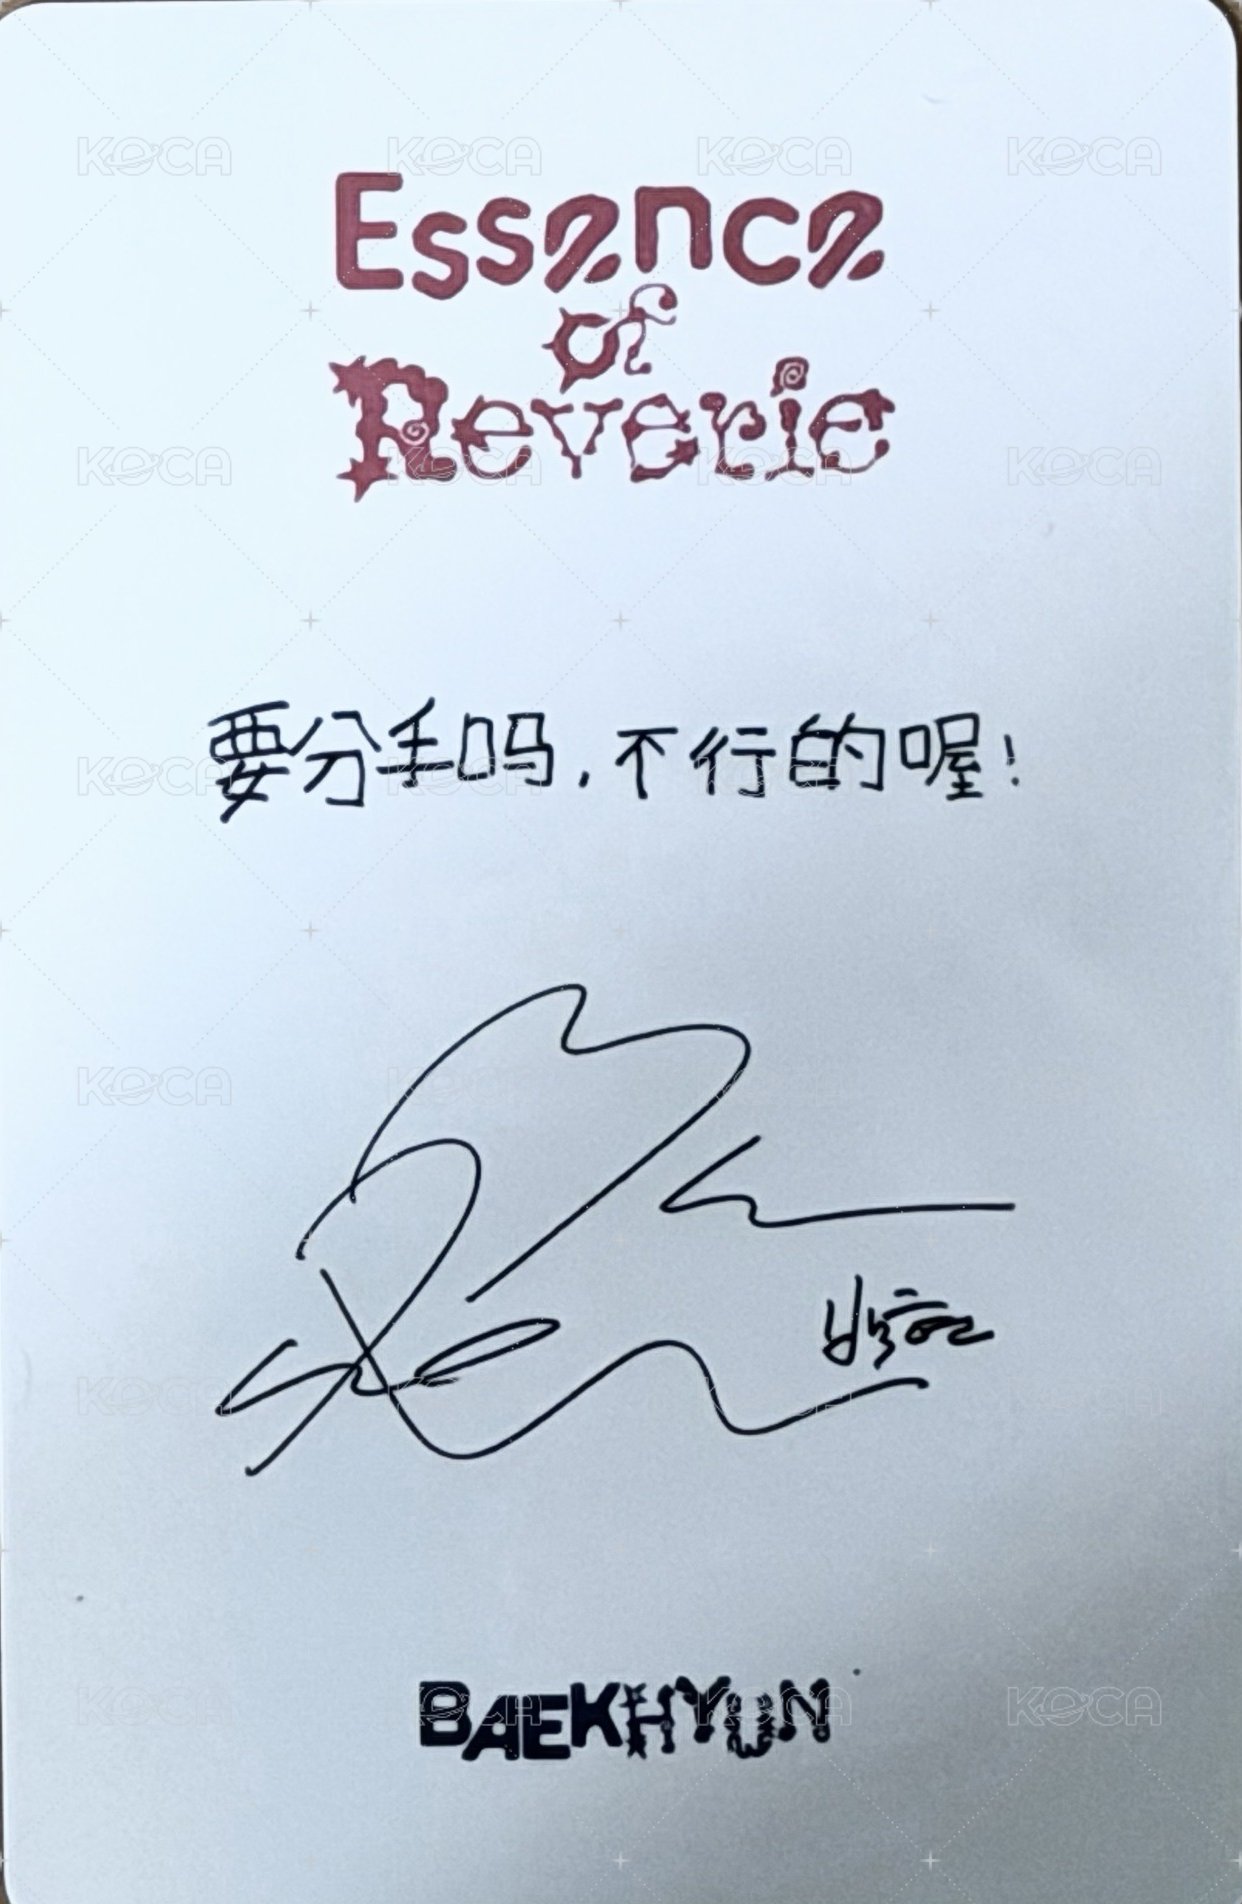 Essence
of
Reverie
要分手吗，不行的喔！
백현
BAEKHYUN
KOCA